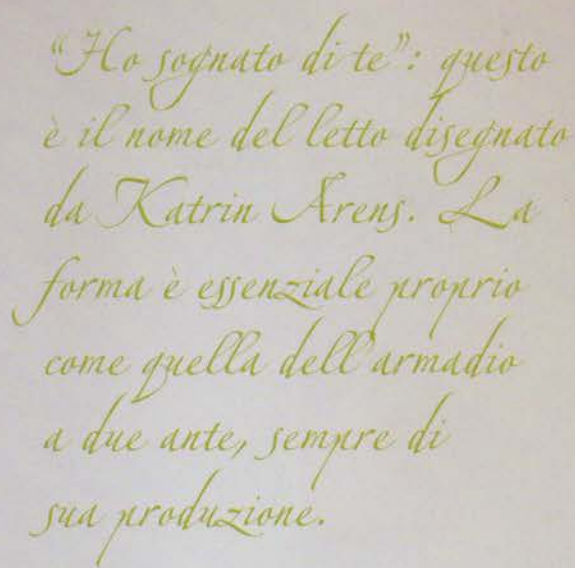 “Ho sognato di te”: questo
è il nome del letto disegnato
da Katrin Arens. La
forma è essenziale proprio
come quella dell'armadio
a due ante, sempre di
sua produzione.